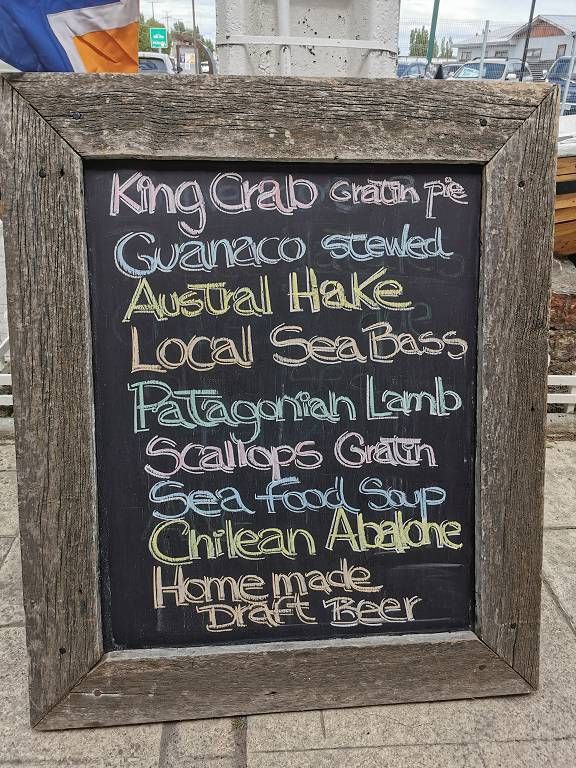 King Crab Gratin pie
Guanaco stewed
Austral Hake
Local Sea Bass
Patagonian Lamb
Scallops Gratin
Sea food Soup
Chilean Abalone
Home made
Draft Beer